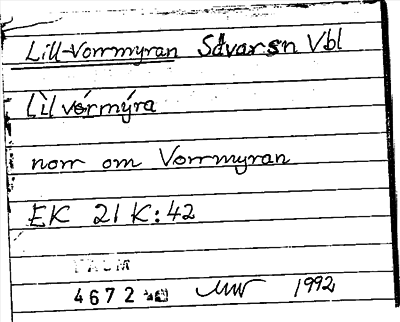 Lill-Vormyran Sävarsn Vbl
lìl vórmýra
norr om Vormyran
EK 21 K:42
4672
1992